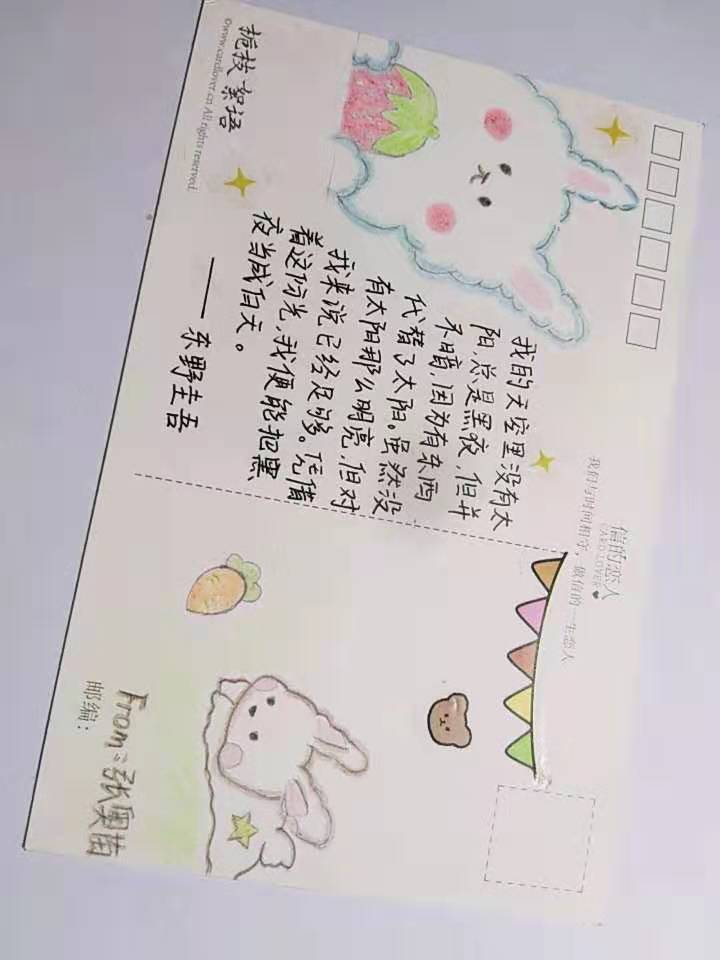 信的恋人
CARD LOVER
我们与时间相守，做信的一生恋人
我的天空里没有太
阳,总是黑夜,但并
不暗,因为有东西
代替了太阳。虽然没
有太阳那么明亮,但对
我来说已经足够。凭借
着这份光,我便能把黑
夜当成白天。
——东野圭吾
栀枝絮语
©www.cardlover.cn All rights reserved.
From:张奥苗
邮编：